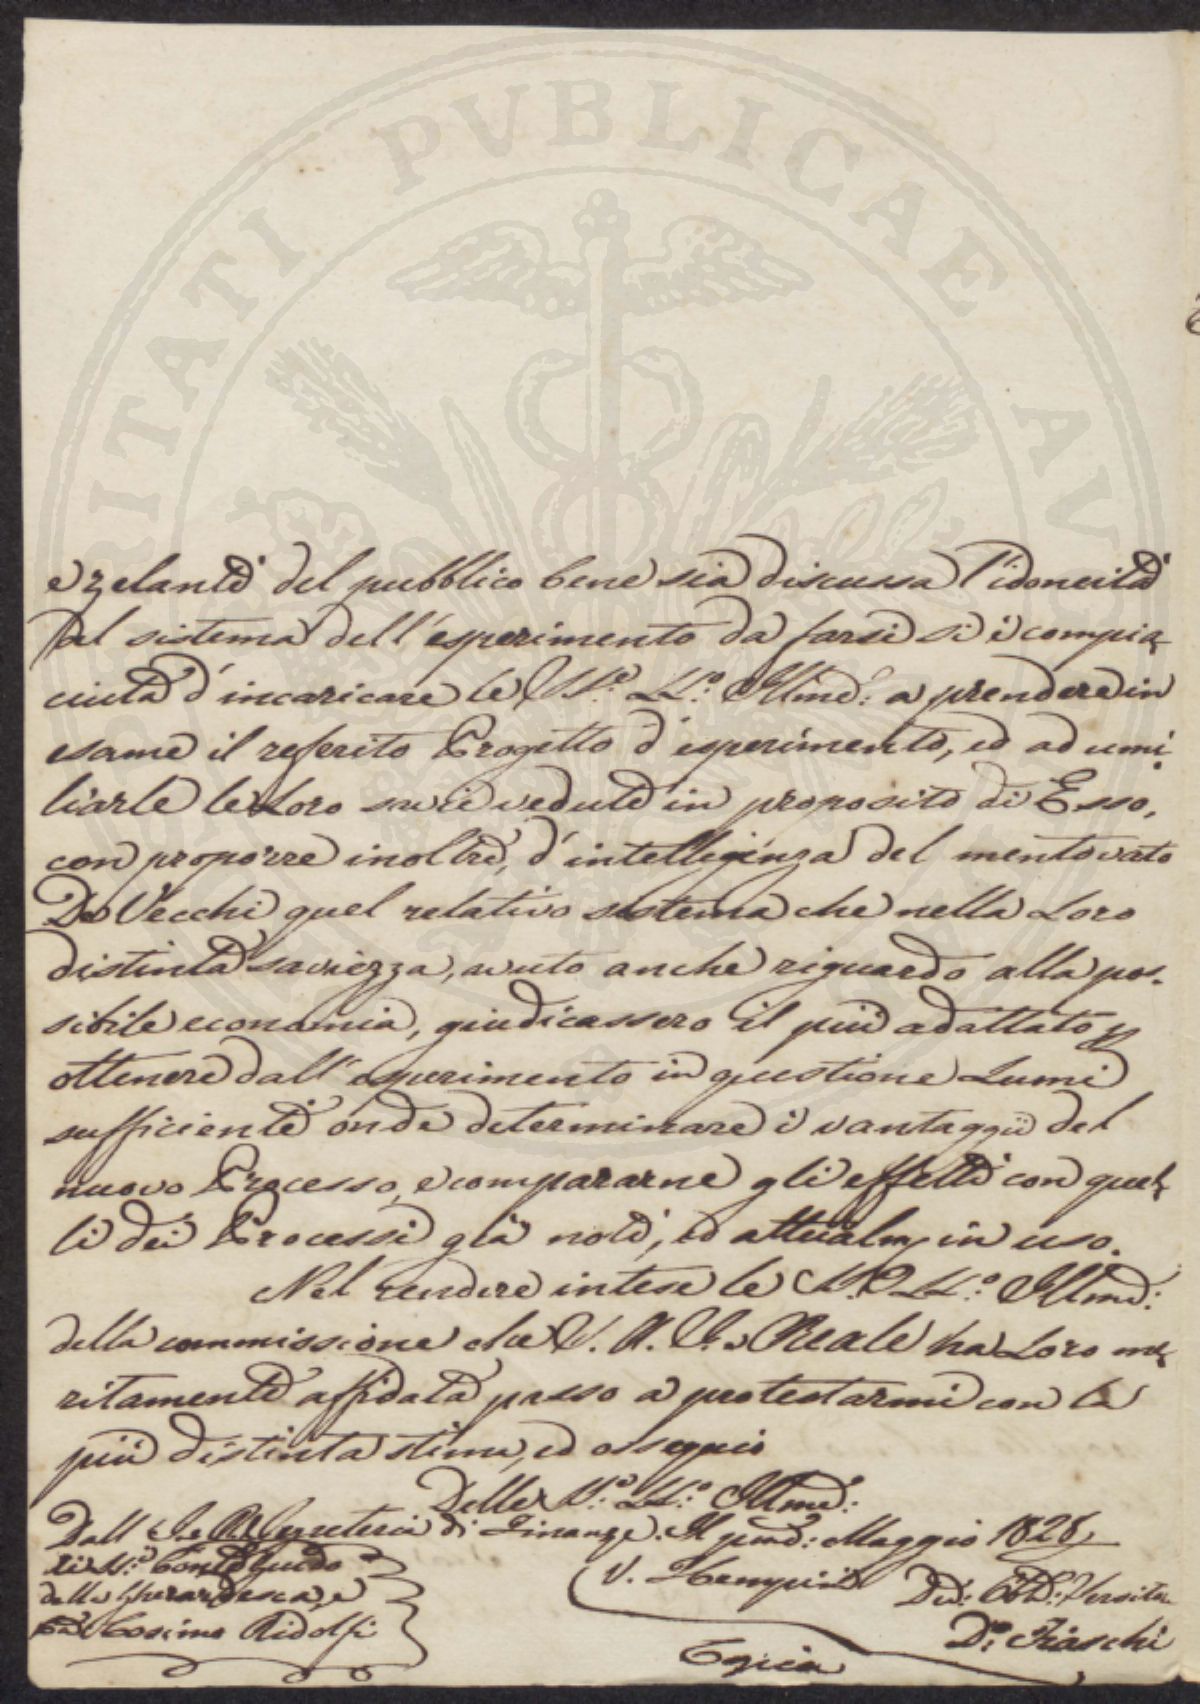 PROSPERITATI PVBLICAE AVGENDAE
e zelanti del pubblico bene sia discussa l'idoneità
del sistema dell'esperimento da farsi si è compia-
ciuta d'incaricare le VV.e LL.e Illme: a prendere in
esame il referito Progetto d'esperimento, ed ad umi-
liarle le Loro savie vedute in proposito di Esso,
con proporre inoltre, d'intelligenza del mentovato
De Vecchi quel relativo sistema che nella Loro
distinta saviezza, avuto anche riguardo alla pos-
sibile economia, giudicassero il più adattato p
ottenere dall'esperimento in questione Lumi
sufficienti onde determinare i vantaggi del
nuovo Processo, e compararne gli effetti con quel-
li dei Processi già noti, ed attualm in uso.
Nel rendere intese le VV.e LL.e Illme:
della commissione che S. A. I. e Reale ha Loro me-
ritamente affidata passo a protestarmi con la
più distinta stima, ed ossequio
Delle VV.e LL.e Illme:
Dall' I. e R. Segreteria di Finanze. Il pmo: Maggio 1828
Conte Guido
della Gherardesca, e
Cosimo Ridolfi
V.
Dev: Obb: Servitor
D. Fiaschi
Copia